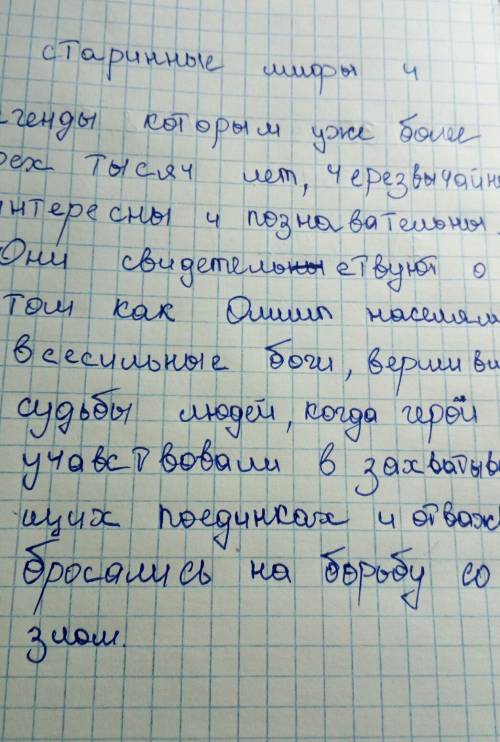 старинные мифы и
генды которым уже более
рех тысяч лет, черезвычайн
нтересны и познавательны.
Они свидетельствуют о
том как Олимп населял
всесильные боги, вершиви
судьбы людей, когда герой
учавствовали в захватыв
щих поединках и отваж
бросались на борьбу со
злом.